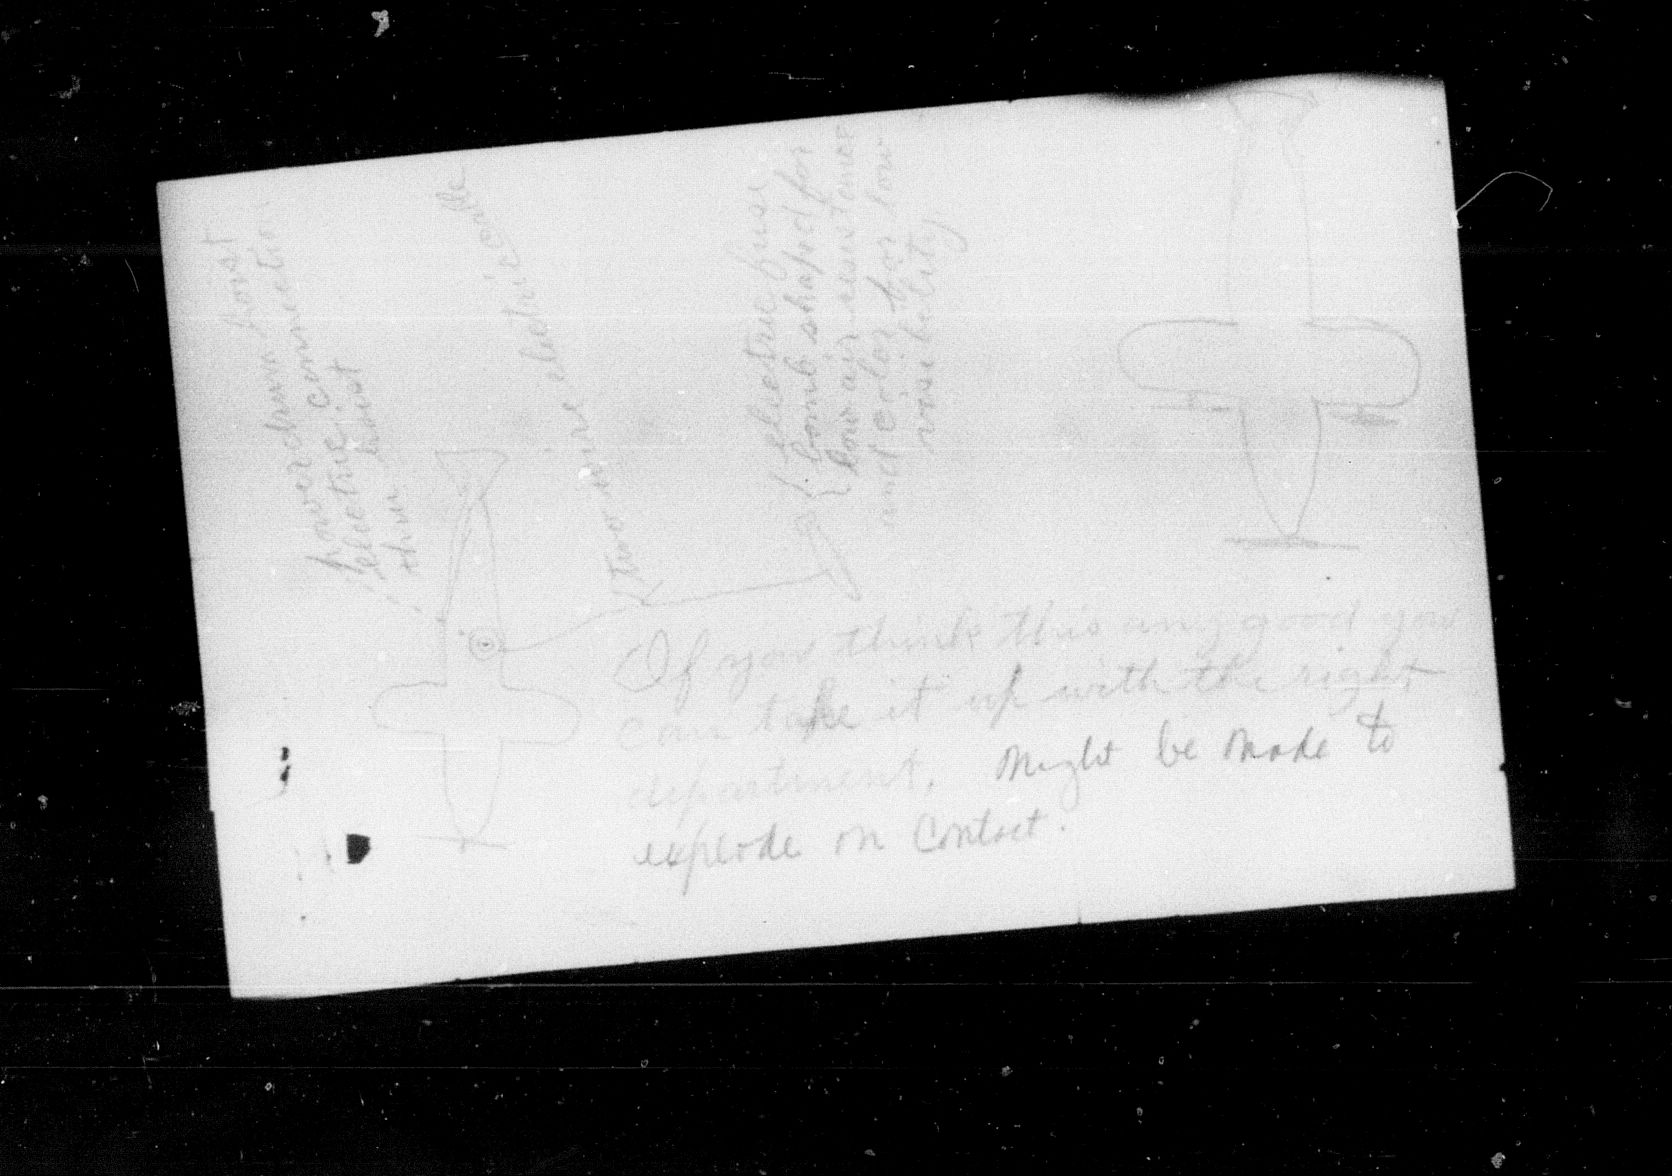 power drum hoist
electric connection
thru hoist
two wire electric cable
electric fuse
bomb shaped for
low air resistance
and color for low
visibility
If you think this any good you
can take it up with the right
department. Might be made to
explode on Contact.